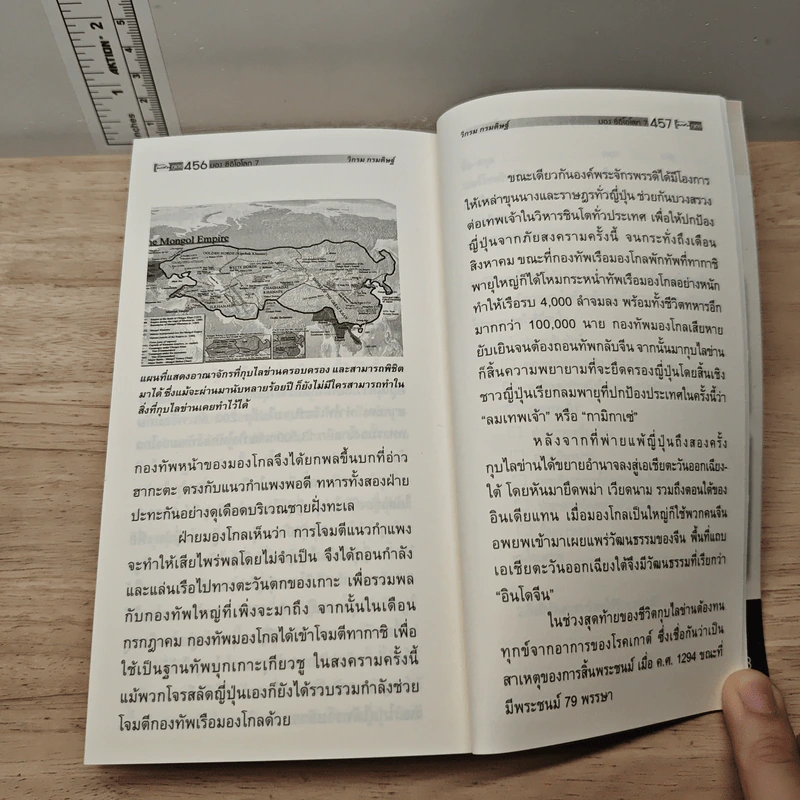 AKTION
inches
456 มอง ซีอีโอโลก 7
วิกรม กรมดิษฐ์
he Mongol Empire
แผนที่แสดงอาณาจักรที่กุบไลข่านครอบครอง และสามารถพิชิต
มาได้ ซึ่งแม้จะผ่านมานับหลายร้อยปี ก็ยังไม่มีใครสามารถทำใน
สิ่งที่กุบไลข่านเคยทำไว้ได้
กองทัพหน้าของมองโกลจึงได้ยกพลขึ้นบกที่อ่าว
ฮากะตะ ตรงกับแนวกำแพงพอดี ทหารทั้งสองฝ่าย
ปะทะกันอย่างดุเดือดบริเวณชายฝั่งทะเล
ฝ่ายมองโกลเห็นว่า การโจมตีแนวกำแพง
จะทำให้เสียไพร่พลโดยไม่จำเป็น จึงได้ถอนกำลัง
และแล่นเรือไปทางตะวันตกของเกาะ เพื่อรวมพล
กับกองทัพใหญ่ที่เพิ่งจะมาถึง จากนั้นในเดือน
กรกฎาคม กองทัพมองโกลได้เข้าโจมตีทากาชิ เพื่อ
ใช้เป็นฐานทัพบุกเกาะเกียวชู ในสงครามครั้งนี้
แม้พวกโจรสลัดญี่ปุ่นเองก็ยังได้รวบรวมกำลังช่วย
โจมตีกองทัพเรือมองโกลด้วย
วิกรม กรมดิษฐ์
มอง ซีอีโอโลก 7 457
ขณะเดียวกันองค์พระจักรพรรดิได้มีโองการ
ให้เหล่าขุนนางและราษฎรทั่วญี่ปุ่น ช่วยกันบวงสรวง
ต่อเทพเจ้าในวิหารชินโตทั่วประเทศ เพื่อให้ปกป้อง
ญี่ปุ่นจากภัยสงครามครั้งนี้ จนกระทั่งถึงเดือน
สิงหาคม ขณะที่กองทัพเรือมองโกลพักทัพที่ทากาชิ
พายุใหญ่ก็ได้โหมกระหน่ำทัพเรือมองโกลอย่างหนัก
ทำให้เรือรบ 4,000 ลำจมลง พร้อมทั้งชีวิตทหารอีก
มากกว่า 100,000 นาย กองทัพมองโกลเสียหาย
ยับเยินจนต้องถอนทัพกลับจีน จากนั้นมากุบไลข่าน
ก็สิ้นความพยายามที่จะยึดครองญี่ปุ่นโดยสิ้นเชิง
ชาวญี่ปุ่นเรียกลมพายุที่ปกป้องประเทศในครั้งนี้ว่า
“ลมเทพเจ้า” หรือ “กามิกาเซ่”
หลังจากที่พ่ายแพ้ญี่ปุ่นถึงสองครั้ง
กุบไลข่านได้ขยายอำนาจลงสู่เอเชียตะวันออกเฉียง-
ใต้ โดยหันมายึดพม่า เวียดนาม รวมถึงตอนใต้ของ
อินเดียแทน เมื่อมองโกลเป็นใหญ่ก็ใช้พวกคนจีน
อพยพเข้ามาเผยแพร่วัฒนธรรมของจีน พื้นที่แถบ
เอเชียตะวันออกเฉียงใต้จึงมีวัฒนธรรมที่เรียกว่า
“อินโดจีน”
ในช่วงสุดท้ายของชีวิตกุบไลข่านต้องทน
ทุกข์จากอาการของโรคเกาต์ ซึ่งเชื่อกันว่าเป็น
สาเหตุของการสิ้นพระชนม์ เมื่อ ค.ศ. 1294 ขณะที่
มีพระชนม์ 79 พรรษา